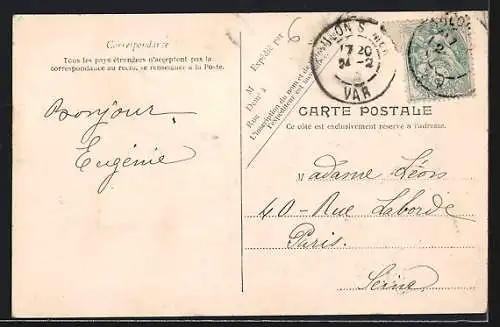 Correspondance
Tous les pays étrangers n'acceptant pas la
correspondance au recto, se renseigner à la Poste.
Bonjour.
Eugénie
6
Expédié par
M
Demt à
Rue
L'inscription du nom et de l'
l'expéditeur est
TOULON S MER
17 20
24 - 2
VAR
CARTE POSTALE
Ce côté est exclusivement réservé à l'adresse.
Madame Léon
40 - Rue Laborde
Paris.
Seine